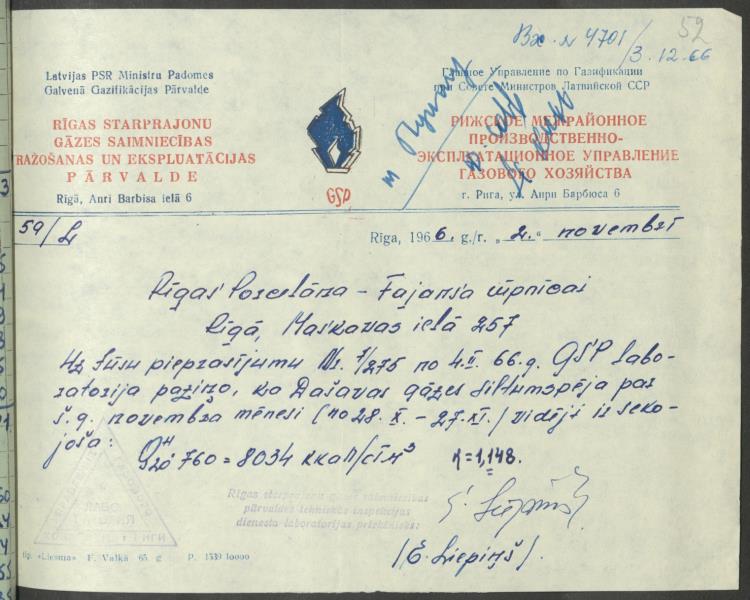 52
Вх. № 4701/3.12.66
Latvijas PSR Ministru Padomes
Galvenā Gazifikācijas Pārvalde
RĪGAS STARPRAJONU
GĀZES SAIMNIECĪBAS
RAŽOŠANAS UN EKSPLUATĀCIJAS
PĀRVALDE
Rīgā, Anri Barbisa ielā 6
GSP
Главное Управление по Газификации
при Совете Министров Латвийской ССР
РИЖСКОЕ МЕЖРАЙОННОЕ
ПРОИЗВОДСТВЕННО-
ЭКСПЛУАТАЦИОННОЕ УПРАВЛЕНИЕ
ГАЗОВОГО ХОЗЯЙСТВА
г. Рига, ул. Анри Барбюса 6
59/L
Rīga, 1966. g./г. „2.“ novembrī
Rīgas Porcelāna - Fajansa rūpnīcai
Rīgā, Maskavas ielā 257
Uz Jūsu pieprasījumu Nr. 1/275 no 4.II. 66.g. GSP labo-
ratorija paziņo, ka Dašavas gāzes siltumspēja par
š.g. novembra mēnesi (no 28. X. - 27. XI.) vidēji ir seko-
joša:
Q 20 760 = 8034 kkal/m³ = 1,148.
Rīgas starprajonu gāzes saimniecības
pārvaldes tehniskās inspekcijas
dienesta laboratorijas priekšnieks:
(Ē. Liepiņš).
Tip. «Liesma» F. Valkā 65. g P. 1539 10000